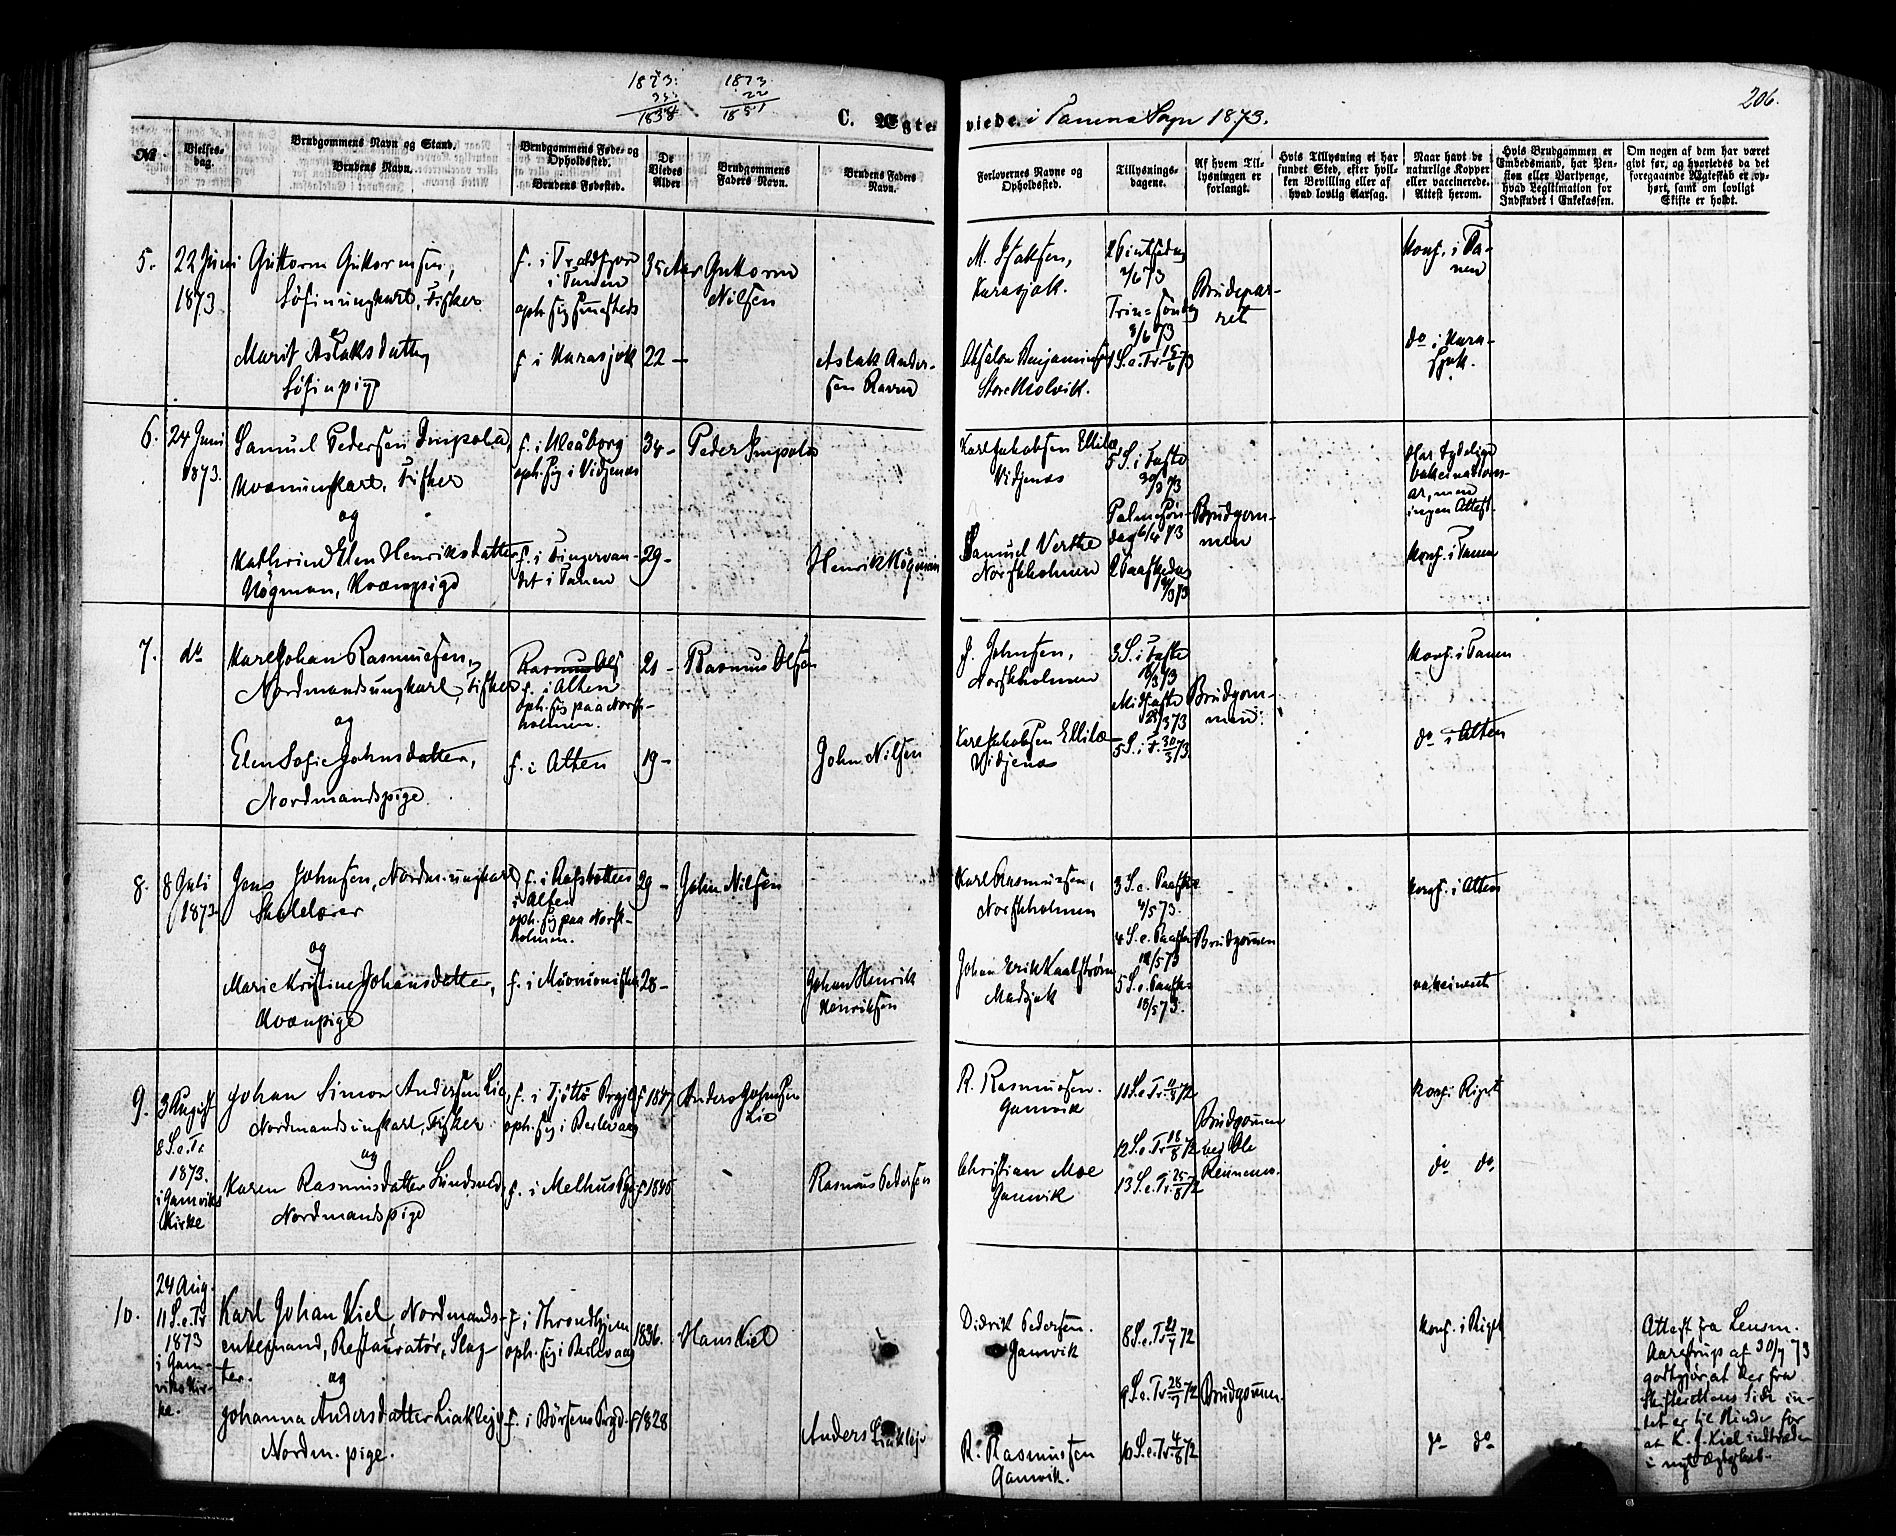 1873.
35.
1838
1873.
22
1851
206.
C. Ægteviede. i Tanens Sogn 1873.
№
Vielses-
dag.
Brudgommens Navn og Stand.
Brudens Navn.
Brudgommens Føde- og
Opholdssted.
Brudens Fødested.
De
Viedes
Alder
Brudgommens
Faders Navn.
Brudens Faders
Navn.
Forlovernes Navne og
Opholdssted.
Tillysnings-
dagene.
Af hvem Til-
lysningen er
forlangt.
Hvis Tillysning ei har
fundet Sted, efter hvil-
ken Bevilling eller af
hvad lovlig Aarsag.
Naar havt de
naturlige Kopper
eller vaccinerede.
Attest herom.
Hvis Brudgommen er
Embedsmand, har Pen-
sion eller Vartpenge,
hvad Legitimation for
Indskudet i Enkekassen.
Om nogen af dem har været
givt før, og hvorledes da det
foregaaende Ægteskab er op-
hørt, samt om lovligt
Skifte er holdt.
5.
22 Juni
1873
Guttorm Guttormsen,
Søfinungkarl, Fisker
og
Marit Aslaksdatter,
Søfinpige
i Tanen
oph. sig smsteds
f. i Karasjok
35 Aar
22 -
Guttorm
Nilsen
Aslak Ander-
sen Ravna
M. Isaksen,
Karasjok.
Absalon Benjaminsen
Store Molvik.
2 Pintsedag
2/6 73
Trin= Søndag
8/6 73
1 S. e. Tr. 15/6 73
Brudepar-
ret
Konf. i Ta-
nen
do i Kara-
sjok.
6.
24 Juni
1873.
Samuel Pedersen Impola,
Kvænungkarl, Fisker
og
Kathrine Elen Henriksdatter
Högman, Kvænpige
f. i Uleåborg
oph. sig i Vidjenæs
f. i Fingervan-
det i Tanen
34 -
29 -
Peder Impola
Henrik Högman
Karl Jakobsen Ellilæ
Vidjenæs
Samuel Verthe
Norskholmen
5 S. i Faste
30/3 73
Palmesøn-
dag 6/4 73
2 Paaskedag
Brudgom-
men
Har tydelige
Vakcinations-
ar, men
ingen Attest.
Konf. i Tanen
7.
do
Karl Johan Rasmussen,
Nordmandsungkarl, Fisker
og
Elen Sofie Johnsdatter,
Nordmandspige.
Rasmus Ols
f. i Alten
oph. sig paa Norsk-
holmen.
f. i Alten
21 -
19 -
Rasmus Olsen
John Nilsen
J. Johnsen,
Norskholmen
Karl Jakobsen Ellilæ
Vidjenæs
3 S. i Faste
Midfaste
5 S. i F. 30/3 73
Brudgom-
men.
Konf. i Tanen
do i Alten
8.
8 Juli
1873
Jens Johnsen, Nordm. ungkarl
Skolelærer
og
Marie Kristine Johansdatter,
Kvænpige
f. i Rafsbotten
i Alten
oph. sig paa Norsk-
holmen.
f. i Muonioniska
29 -
28 -
John Nilsen
Johan Henrik
Henriksen
Karl Rasmussen,
Norskholmen
Johan Erik Kaalstrøm
Madsjok
3 S. e. Paaske
4/5 73.
4 S. e. Paaske
5 S. e. Paaske
18/5 73.
Brudgommen
Konf. i Alten
vakcineret
9.
3 August
8 S. e. Tr
1873.
i Gamviks
Kirke
Johan Simon Andersen Lie,
Nordmandsungkarl, Fisker
og
Karen Rasmusdatter
Nordmandspige
f. i Tjøttø Prgjld
oph. sig i Berlevaag
f. i Melhus Pgj
f 1847
f 1845
Anders Johnsen
Lie
Rasmus Pedersen
R. Rasmussen.
Gamvik
Christian Moe
Gamvik
11 S. e. Tr.
12 S. e. Tr. 18/8 72
13 S. e. Tr. 25/8 72
Brudgommen
ved Ole
Konf. i Riget
do do.
10.
24 Aug.
11 S. e. Tr
1873
i Gam-
viks Kir-
ke.
Karl Johan Kiel, Nordmands-
enkemand, Restauratør, Slag-
ter. og
Johanna Andersdatter Liakleje
Nordm. pige.
f i Throndhjem
oph. sig i Berlevaag
f. i Børsens Prgd.
1836.
f 1828
Hans Kiel
Anders Liakleje
Didrik Pedersen.
Gamvik
R. Rasmussen
Gamvik.
8 S. e. Tr. 21/7 72
9 S. e. Tr. 28/7 72
10 S. e. Tr. 4/8 72
Brudgommen.
Konf. i Riget
do do
Attest fra Lensm.
Aarestrup af 30/7 73
godtgjør, at der fra
Skifterettens Side in-
tet er til Hinder for
at K. J. Kiel indtræder
i nyt Ægteskab.